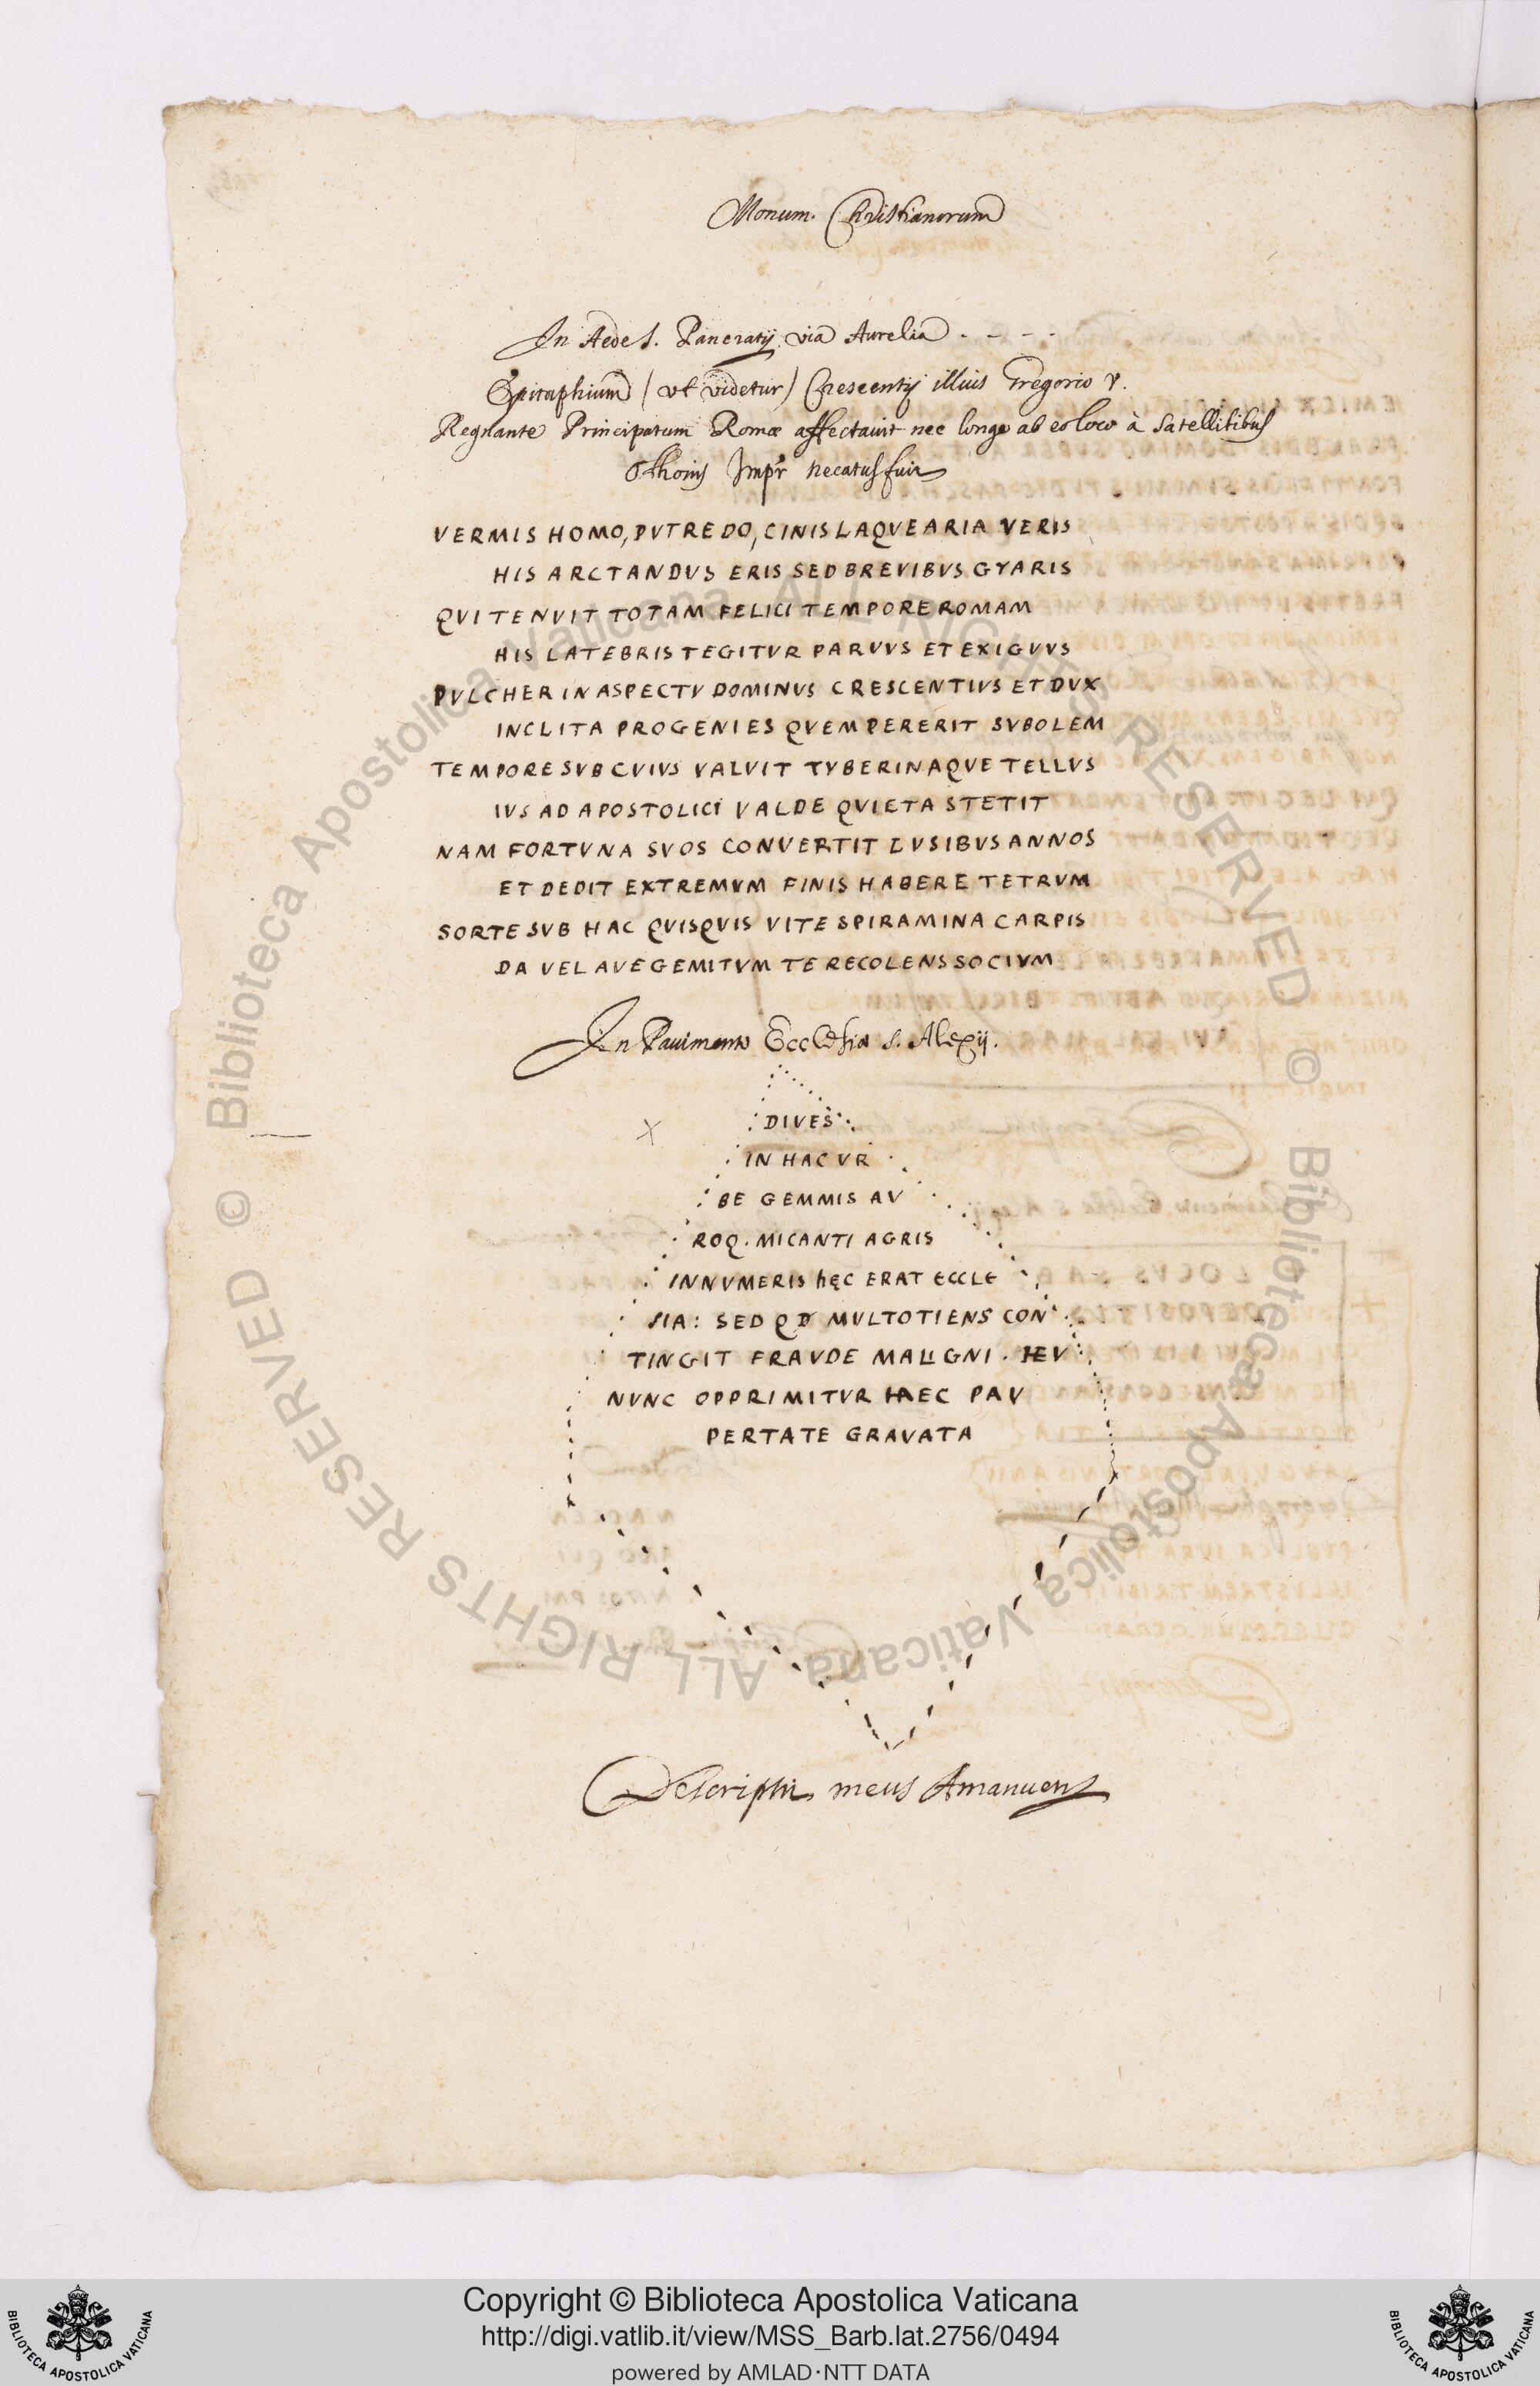 Monum. Christianorum
In Aede S. Pancratij via Aurelia . - - -
Epitaphium (ut videtur) Crescentij illius Gregorio V.
Regnante Principatum Romæ affectauit nec longe ab eo loco à Satellitibus
Othonis Impr necatus fuit
VERMIS HOMO, PVTREDO, CINIS LAQVEARIA VERIS
HIS ARCTANDVS ERIS SED BREVIBVS GYARIS
QVI TENVIT TOTAM FELICI TEMPORE ROMAM
HIS LATEBRIS TEGITVR PARVVS ET EXIGVVS
PVLCHER IN ASPECTV DOMINVS CRESCENTIVS ET DVX
INCLITA PROGENIES QVEM PERERIT SVBOLEM
TEMPORE SVB CVIVS VALVIT TYBERINAQVE TELLVS
IVS AD APOSTOLICI VALDE QVIETA STETIT
NAM FORTVNA SVOS CONVERTIT LVSIBVS ANNOS
ET DEDIT EXTREMVM FINIS HABERE TETRVM
SORTE SVB HAC QVISQVIS VITE SPIRAMINA CARPIS
DA VEL AVE GEMITVM TE RECOLENS SOCIVM
In Pauimento Ecclesia S. Alexij.
X
DIVES
IN HAC VR
BE GEMMIS AV
ROQ. MICANTI AGRIS
INNVMERIS hęC ERAT ECCLE
SIA: SED QD MVLTOTIENS CON
TINGIT FRAVDE MALIGNI. HEV
NVNC OPPRIMITVR HAEC PAV
PERTATE GRAVATA
Descripsit meus Amanuens
Biblioteca Apostolica Vaticana ALL RIGHTS RESERVED ©
Biblioteca Apostolica Vaticana ALL RIGHTS RESERVED ©
Copyright © Biblioteca Apostolica Vaticana
http://digi.vatlib.it/view/MSS_Barb.lat.2756/0494
powered by AMLAD·NTT DATA
BIBLIOTECA APOSTOLICA VATICANA
BIBLIOTECA APOSTOLICA VATICANA